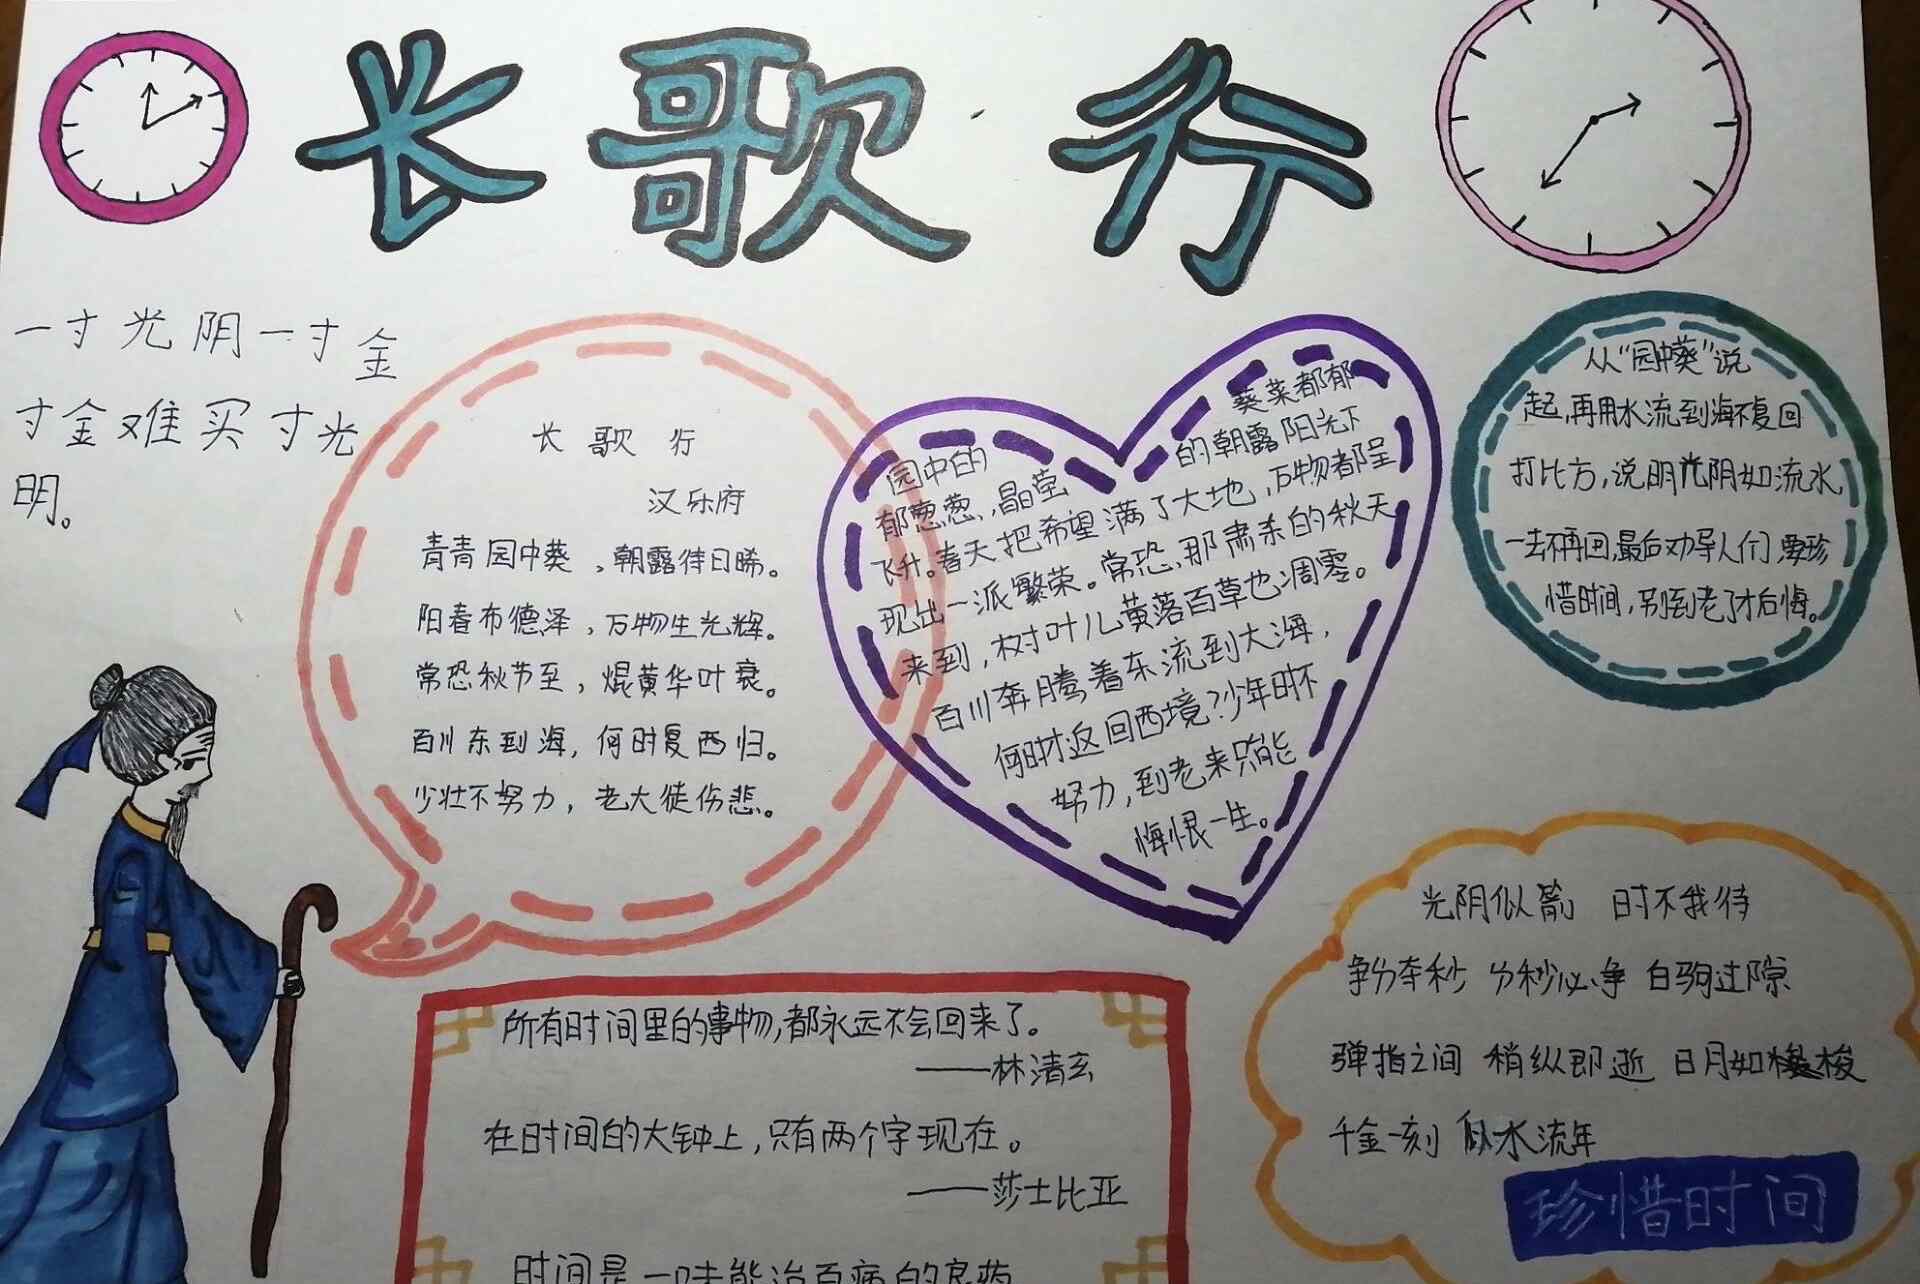 长歌行
一寸光阴一寸金
寸金难买寸光
明。
长歌行
汉乐府
青青园中葵，朝露待日晞。
阳春布德泽，万物生光辉。
常恐秋节至，焜黄华叶衰。
百川东到海，何时复西归。
少壮不努力，老大徒伤悲。
园中的葵菜都郁
郁葱葱，晶莹的朝露阳光下
飞升。春天把希望满了大地，万物都呈
现出一派繁荣。常恐，那肃杀的秋天
来到，树叶儿黄落百草也凋零。
百川奔腾着东流到大海，
何时才返回西境？少年时不
努力，到老来只能
悔恨一生。
从“园中葵”说
起，再用水流到海不复回
打比方，说明光阴如流水，
一去不再回，最后劝导人们，要珍
惜时间，别到老了才后悔。
所有时间里的事物，都永远不会回来了。
——林清玄
在时间的大钟上，只有两个字现在。
——莎士比亚
时间是一味能治百病的良药
光阴似箭 时不我待
争分夺秒 分秒必争 白驹过隙
弹指之间 稍纵即逝 日月如梭
千金一刻 似水流年
珍惜时间